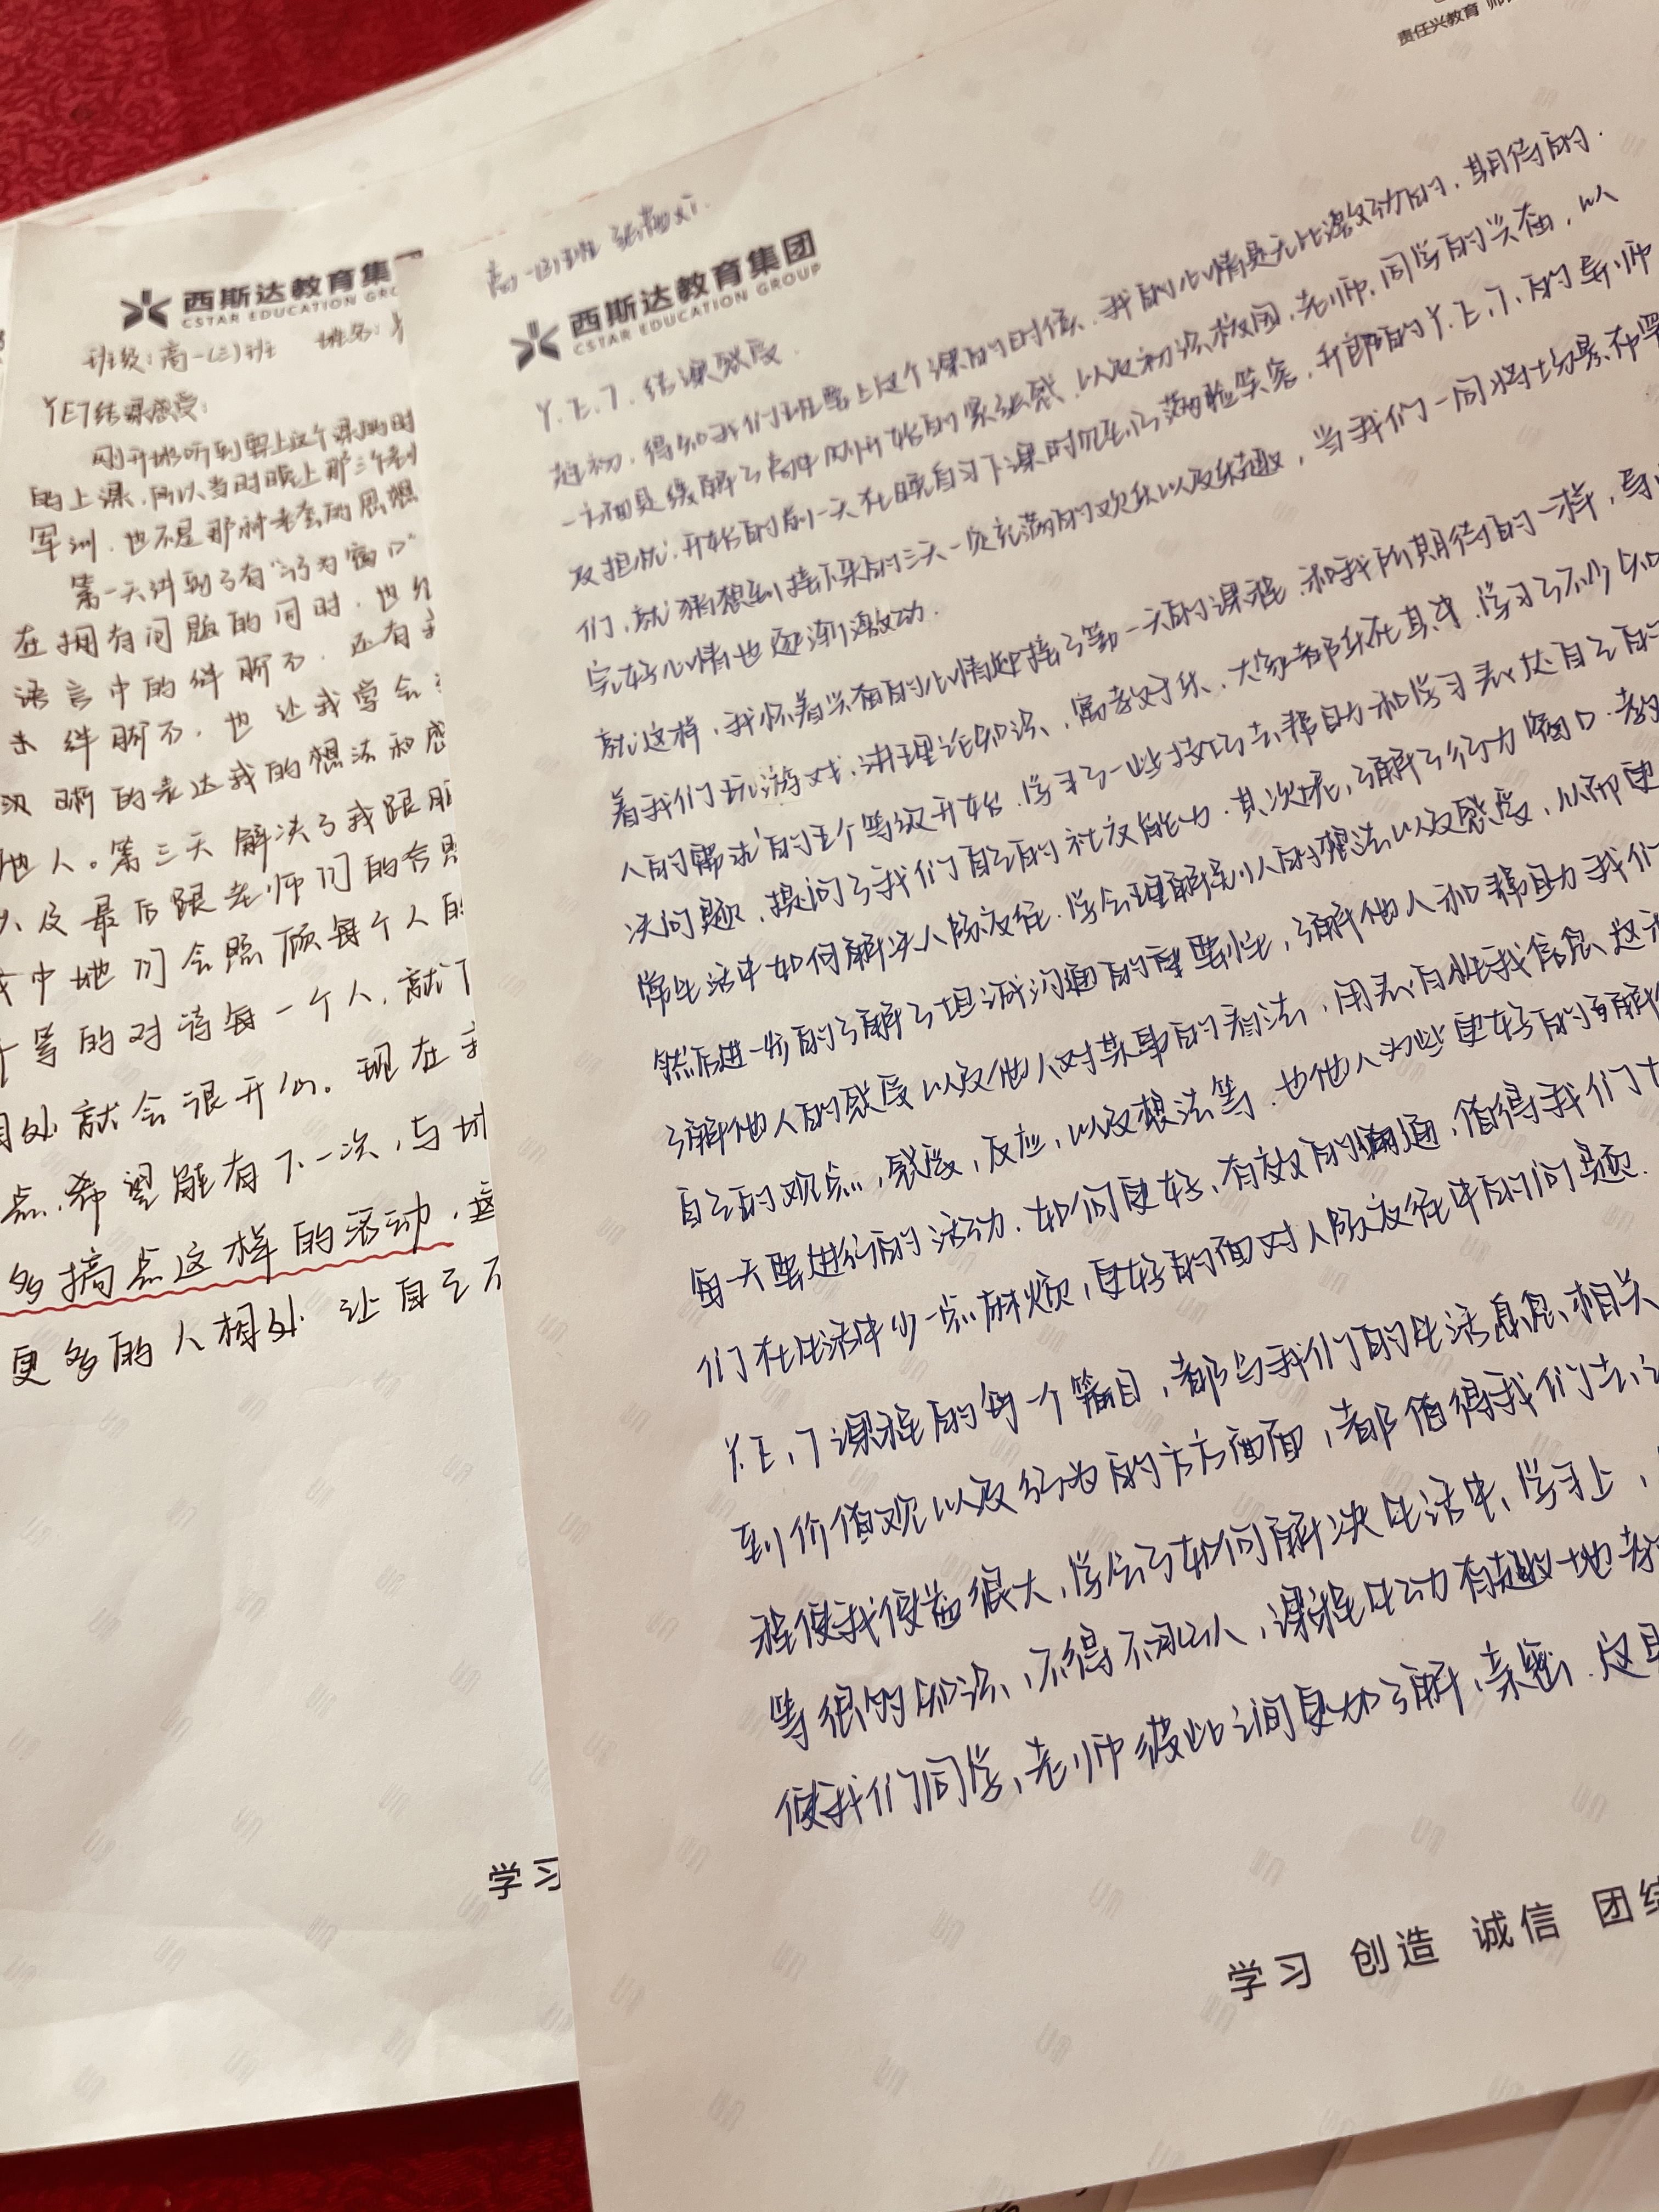 西斯达教育集
CSTAR EDUCATION GRO
班级:高一(三)班 姓名:
YE7结课感受:
刚开始听到要上这个课的时
的上课,所以当时晚上那三个
军训,也不是那种老套的思想
第一天讲到了有"行为窗口"
在拥有问题的同时,也
语言中的绊脚石,还有
绊脚石,也让我学会
晰的表达我的想法和感
他人。第三天解决了我跟
以及最后跟老师们的合照
中他们会照顾每个人的
等的对待每一个人,就
相处就会很开心。现在我
点,希望能有下一次,与
多搞点这样的活动,
更多的人相处,让自己不
学习
责任兴教育 师
高一(3)班
西斯达教育集团
CSTAR EDUCATION GROUP
Y.E.7.结课感受.
起初,得知我们班要上这个课的时候,我的心情是无比激动的,期待的.
一方面是缓解了高中刚开始的紧张感,以及初识校园,老师,同学的兴奋,以
及担忧.开始的前一天在晚自习下课时见到了满脸笑容,开朗的Y.E.7.的导师
们,就猜想到接下来的三天一定充满的欢乐以及乐趣,当我们一同将场景布置
完好心情也逐渐激动.
就这样,我怀着兴奋的心情迎接了第一天的课程.和我所期待的一样,导
着我们玩游戏,讲理论知识,寓教于乐,大家都乐在其中,学习了不少知
人的需求的五个等级开始,学习了一些技巧去帮助和学习表达自己的
决问题,提问了我们自己的社交能力.其次呢,了解了行为窗口.教
常生活中如何解决人际交往.学会理解别人的想法以及感受,从而更
然后进一步的了解了坦诚沟通的重要性,了解他人和帮助我们
了解他人的感受以及他人对某事的看法,用表白性我信息,这
自己的观点,感受,反应,以及想法等.也他人为些更好的了解
每一天要进行的活动.如何更好,有效的沟通,值得我们
们在生活中少一点麻烦,更好的面对人际交往中的问题.
Y.E.7课程的每一个篇目,都与我们的生活息息相关
到价值观以及行为的方方面面,都值得我们去
程使我受益很大,学会了如何解决生活中,学习上,
等很多知识,不得不承认,课程生动有趣地
使我们同学,老师彼此之间更加了解,亲密.这
学习 创造 诚信 团结